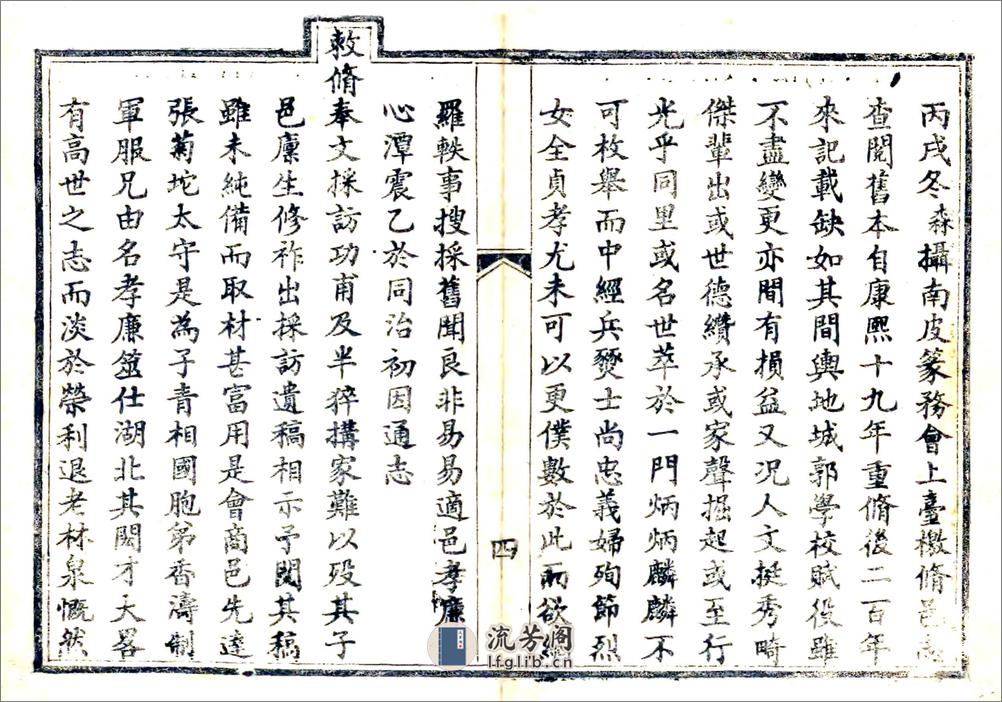 丙戌冬森攝南皮篆務會上臺檄脩邑志
查閱舊本自康熙十九年重脩後二百年
來記載缺如其間輿地城郭學校賦役雖
不盡變更亦間有損益又況人文挺秀畸
傑輩出或世德纘承或家聲掘起或至行
光乎同里或名世萃於一門炳炳麟麟不
可枚舉而中經兵燹士尚忠義婦殉節烈
女全貞孝尤未可以更僕數於此而欲網
四
羅軼事搜採舊聞良非易易適邑孝廉
心潭震乙於同治初因通志
敕脩奉文採訪功甫及半猝搆家難以歿其子
邑廩生修祚出採訪遺稿相示予閱其稿
雖未純備而取材甚富用是會商邑先達
張菊坨太守是為子青相國胞弟香濤制
軍服兄由名孝廉筮仕湖北其閎才大畧
有高世之志而淡於榮利退老林泉慨然
流芳阁
lfglib.cn